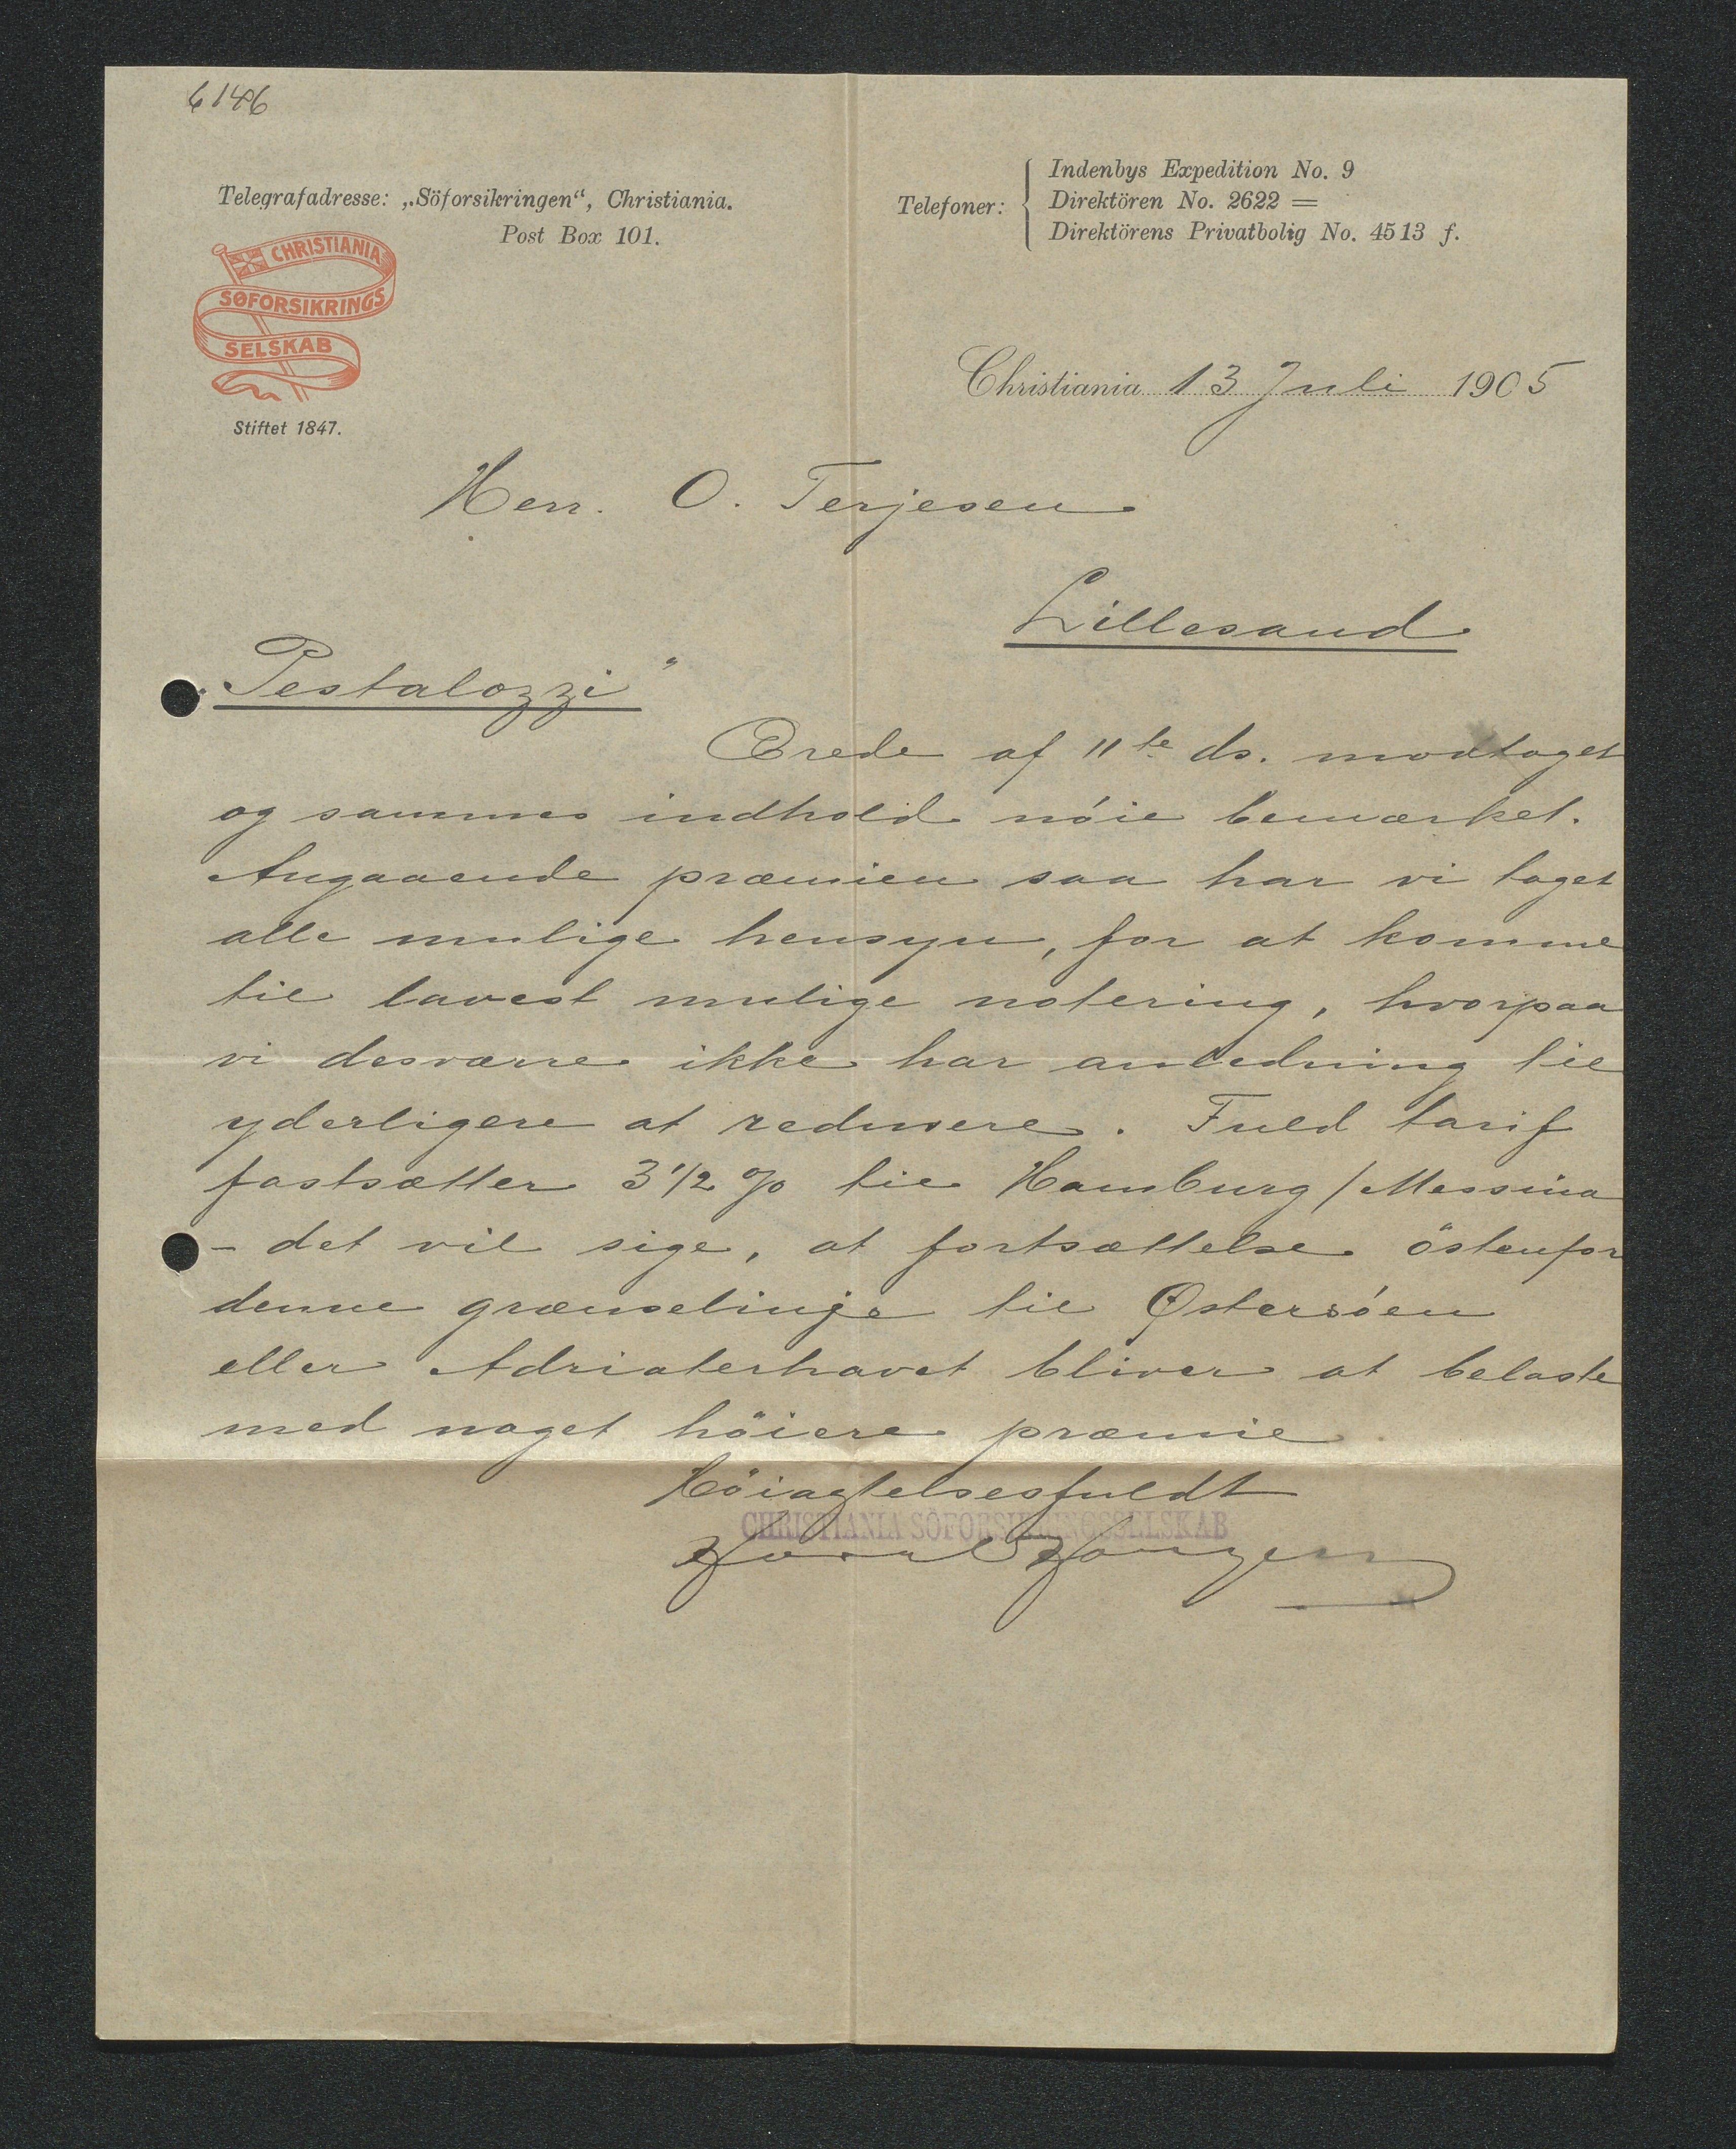 6146
Telegrafadresse: „Söforsikringen“, Christiania.
Post Box 101.
Telefoner:
Indenbys Expedition No. 9
Direktören No. 2622 =
Direktörens Privatbolig No. 4513 f.
CHRISTIANIA
SØFORSIKRINGS
SELSKAB
Stiftet 1847.
Christiania 13 Juli 1905
Herr. O. Terjesen
Lillesand
„Pestalozzi"
Ærede af 11te ds. modtaget
og sammes indhold nóie bemærket.
Angaaende præmien saa har vi taget
alle mulige hensyn, for at komme
til lavest mulige notering, hvorpaa
vi desværre ikke har anledning til
yderligere at reducere. Fuld tarif
fastsætter 3 1/2 % til Hamburg / Messina
- det vil sige, at fortsættelse östenfor
denne grænselinje til Østersóen
eller Adriaterhavet bliver at belaste
med noget höiere præmie.
Höiagtelsesfuldt
CHRISTIANIA SÖFORSIKRINGSSELSKAB